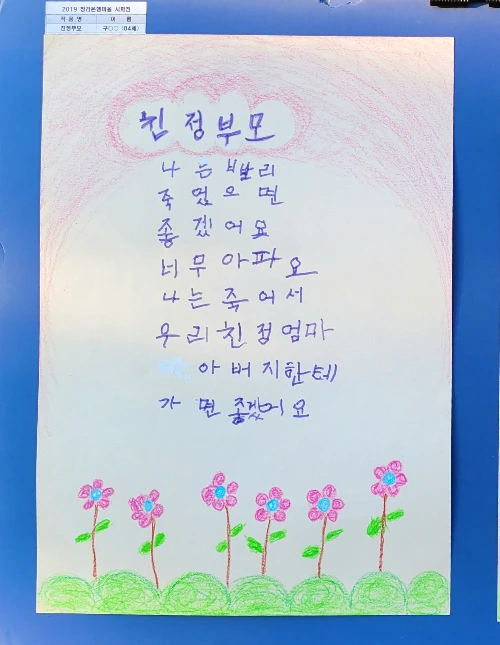 2019 정리은행마을 시화전
작 품 명 이 름
친정부모 구○○ (84세)
친정부모
나는 빨리
죽었으면
좋겠어요
너무 아파요
나는 죽어서
우리 친정엄마
아버지한테
가면 좋겠어요